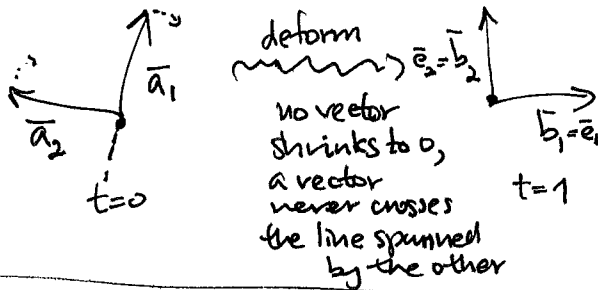 ā₁
ā₂
t=0
deform
no vector
shrinks to 0,
a vector
never crosses
the line spanned
by the other
ē₂=b̄₂
b̄₁=ē₁
t=1